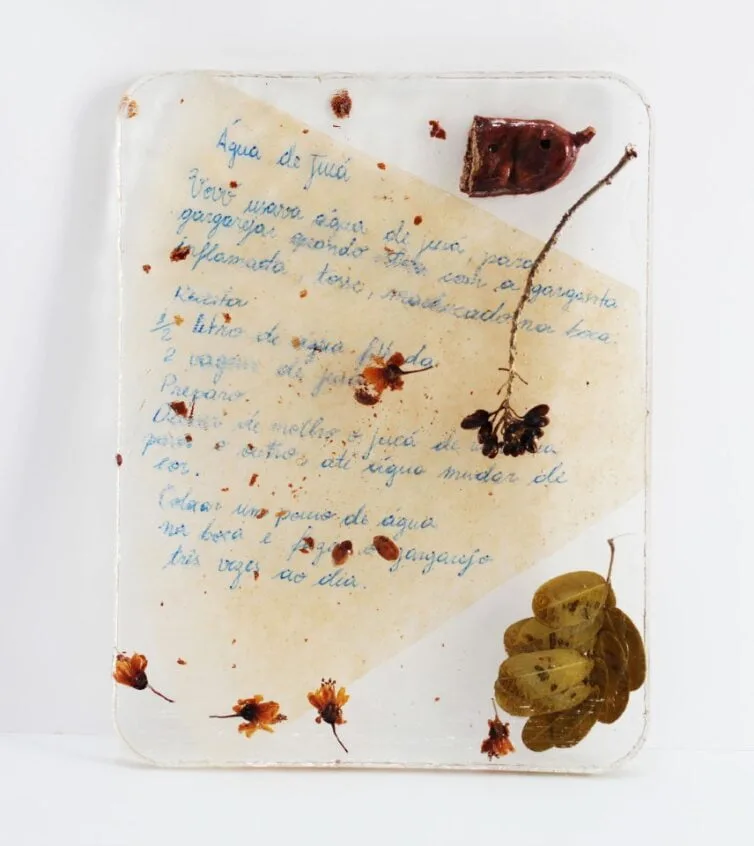 Água de Jucá
Vovó usava água de jucá para
gargarejar quando estava com a garganta
inflamada, tosse, machucado na boca.
Receita
1/2 litro de água filtrada
2 vagens de jucá
Preparo
Deixar de molho o jucá de um dia
para o outro, até água mudar de
cor.
Colocar um pouco de água
na boca e fazer o gargarejo
três vezes ao dia.